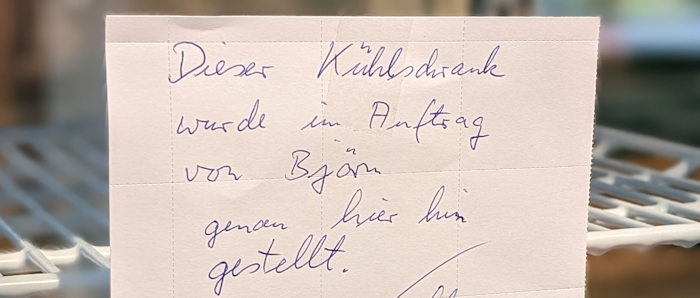 Dieser Kühlschrank
wurde im Auftrag
von Björn
genau hier hin
gestellt.